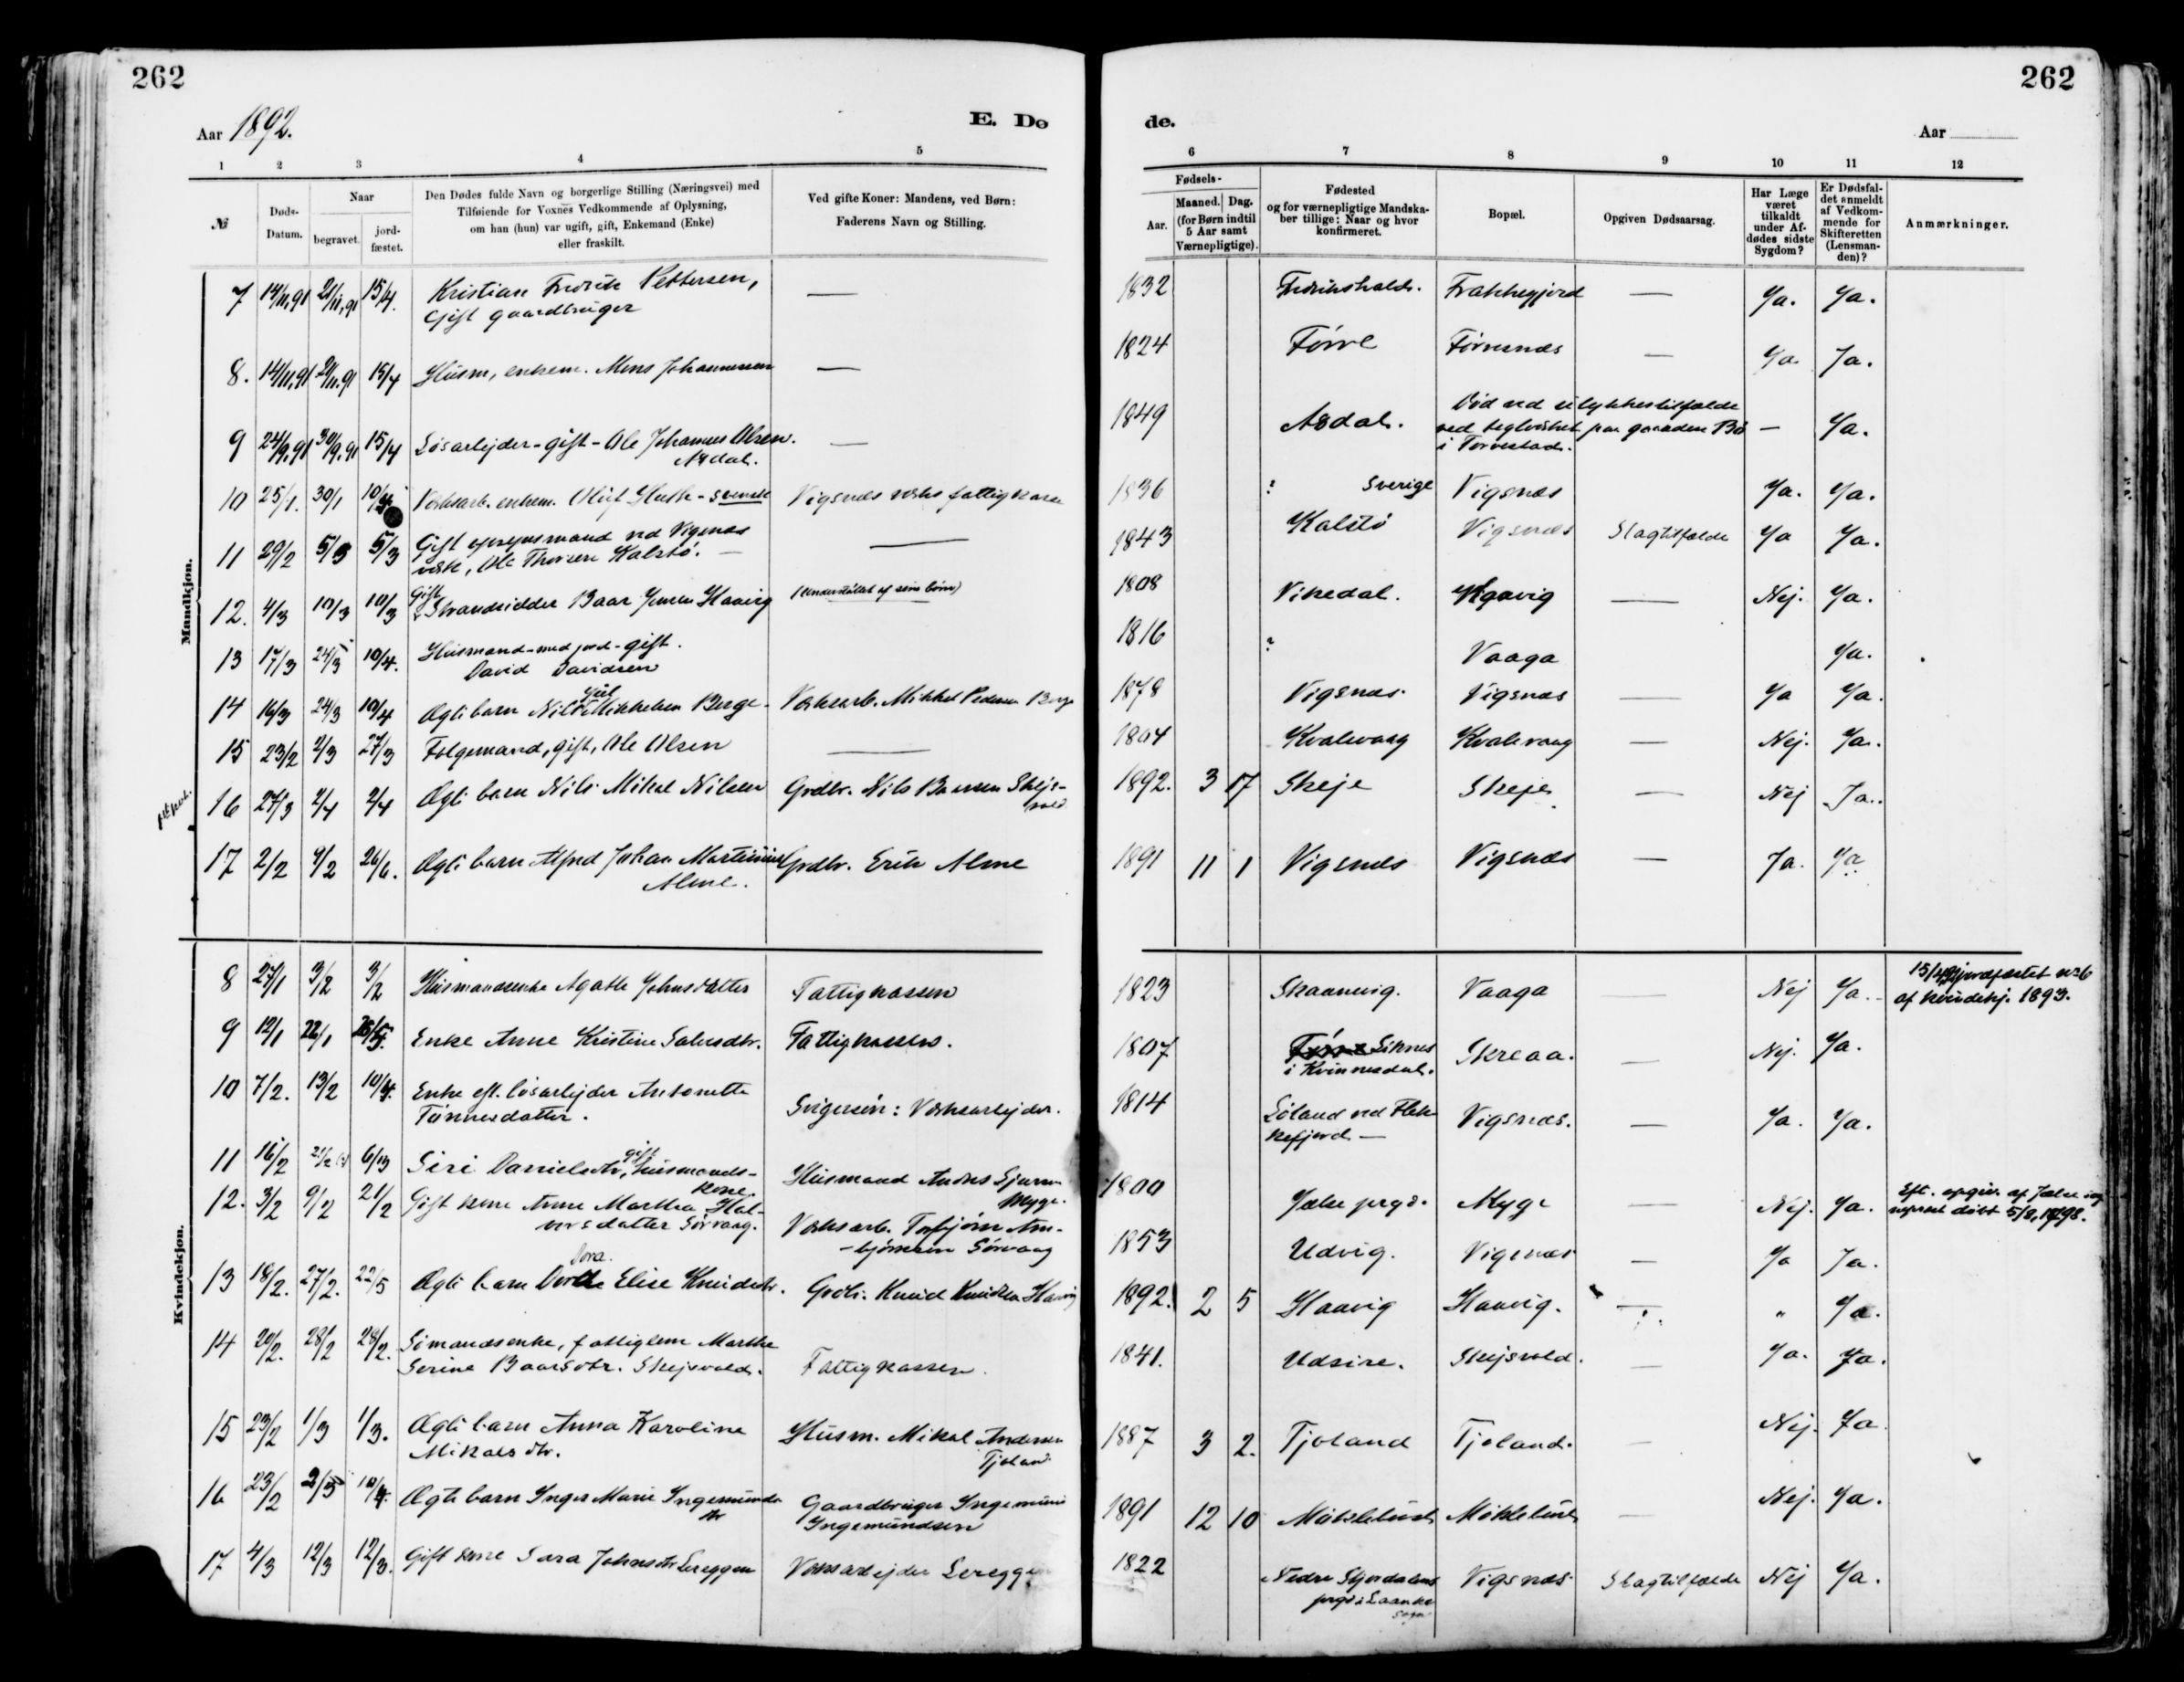 262
262
Aar 1892.
E. Dø
de.
Aar
1 2 3 4 5 6 7 8 9 10 11 12
№
Døds-Datum.
Naar
begravet.
jordfæstet.
Den Dødes fulde Navn og borgerlige Stilling (Næringsvei) med
Tilføiende for Voxnes Vedkommende af Oplysning,
om han (hun) var ugift, gift, Enkemand (Enke)
eller fraskilt.
Ved gifte Koner: Mandens, ved Børn:
Faderens Navn og Stilling.
Fødsels-
Aar.
Maaned. Dag.
(for Børn indtil
5 Aar samt
Værnepligtige).
Fødested
og for værnepligtige Mandska-
ber tillige: Naar og hvor
konfirmeret.
Bopæl.
Opgiven Dødsaarsag.
Har Læge
været
tilkaldt
under Af-
dødes sidste
Sygdom?
Er Dødsfal-
det anmeldt
af Vedkom-
mende for
Skifteretten
(Lensman-
den)?
Anmærkninger.
Mandkjøn.
7 14/11,91 21/11,91 15/4. Kristian Fredrik Pettersen, — 1832 Fredrikshald. — Ja. Ja.
Gift gaardbruger
8. 14/11,91 21/11,91 15/4 Husm, enkem. Mons Johannesen — 1824 Førre Førresnæs — Ja. Ja.
9 24/9,91 30/9,91 15/4 Løsarbejder - gift - Ole Johannes Olsen. — 1849 Død ved ulykkestilfælde
Asdal. ved teglværket paa gaarden Bø — Ja.
i Torvestad.
10 25/1. 30/1 10/4 Værksarb. enkem. Oluf - svensk Vigsnæs værks fattigkasse 1836 ? Sverige Vigsnæs Ja. Ja.
11 29/2 5/3 5/3 Gift opsynsmand ved Vigsnæs — 1843 Kalstø Vigsnæs Slagtilfælde Ja Ja.
værk, Ole Thorsen Kalstø. —
12. 4/3 10/3 10/3 Gift Strandsidder Baar Jensen Haavig (understøttet af sine børn) 1808 Vikedal. Haavig — Nej. Ja.
13 17/3 24/3 10/4. Husmand - med jord - gift. 1816 ? Vaaga Ja.
David Davidsen
14 16/3 24/3 10/4 Ægte barn Mikkelsen Berge. Værksarb. Mikkel Pedersen Berge 1878 Vigsnæs. Vigsnæs — Ja Ja.
15 23/2 2/3 27/3 Følgemand, gift, Ole Olsen — 1804 Kvalevaag Kvalevaag — Nej. Ja.
16 27/3 2/4 2/4 Ægte barn Nils Mikal Nilsen Grdbr. Nils Baarsen Skejs-
vold 1892. 3 17 Skeje Skeje — Nej Ja.
17 2/2 9/2 26/6. Ægte barn Alfred Johan Martinius Grdbr. Erik Alme 1891 11 1 Vigsnæs Vigsnæs — Ja. Ja.
Alme.
Kvindekjøn.
8 27/1 3/2 3/2 Husmandsenke Agathe Johnsdatter Fattigkassen 1823 Skaanevig. Vaaga — Nej Ja. 15/4 jordfæstet no 6
af kvindekj. 1893.
9 12/1 22/1 Enke Anne Kristine Salvesdtr. Fattigkassen. 1807 Liknes Skreaa. — Nej. Ja.
i Kvinnesdal.
10 7/2. 13/2 10/4. Enke eft. løsarbejder Antonette
Tønnesdatter. Svigersøn: Værksarbejder. 1814 Løland ved Flek-
kefjord — Vigsnæs. — Ja. Ja.
11 16/2 6/3 Siri Danielsdtr, gift husmands-
kone. Husmand Andres Sjursen
Myge. 1800 Jælse prgd. Myge — Nej. Ja. Eft. opgiv. af Jælse
døbt 5/8, 1798.
12. 3/2 9/2 21/2 Gift kone Anne Martha Hal-
vorsdatter Sørvaag. Værksarb. Torbjørn Am-
bjørnsen Sørvaag 1853 Udvig. Vigsnæs — Ja Ja.
13 18/2. 27/2. 22/5 Ægte barn Dorthe Dora. Elise Knudsdtr. Grdbr. Knud Knudsen Haavig 1892. 2 5 Haavig Haavig. — " Ja.
14 20/2. 28/2 28/2. Sømandsenke, fattiglem Marthe
Serine Baarsdtr. Skejsvold. Fattigkassen. 1841. Udsire. Skejsvold. — Ja. Ja.
15 23/2 1/3 1/3. Ægte barn Anna Karoline
Mikalsdtr. Husm. Mikal Andersen
Tjoland 1887 3 2. Tjoland Tjoland. — Nej. Ja
16 23/2 2/3 10/4. Ægte barn Inger Marie Ingemunds-
dtr Gaardbruger Ingemund
Ingemundsen 1891 12 10 Møklebust Møklebust — Nej. Ja.
17 4/3 12/3 12/3. Gift kone Sara Johnsdtr Lereggen Værksarbejder Lereggen 1822 Nedre Stjørdalens
prgd i Laanke
sogn Vigsnæs Slagtilfælde Nej Ja.